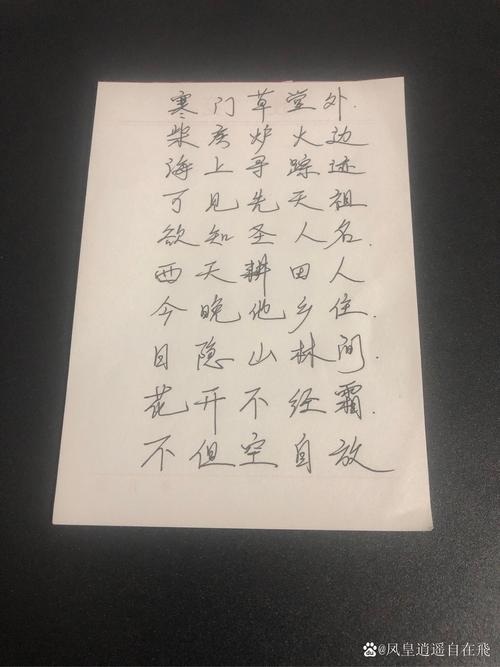 寒门草堂外.
柴房炉火边
海上寻踪迹
可见先天祖
欲知圣人名.
西天耕田人
今晚他乡住.
日隐山林间.
花开不经霜.
不但空自放
@凤皇逍遥自在飛